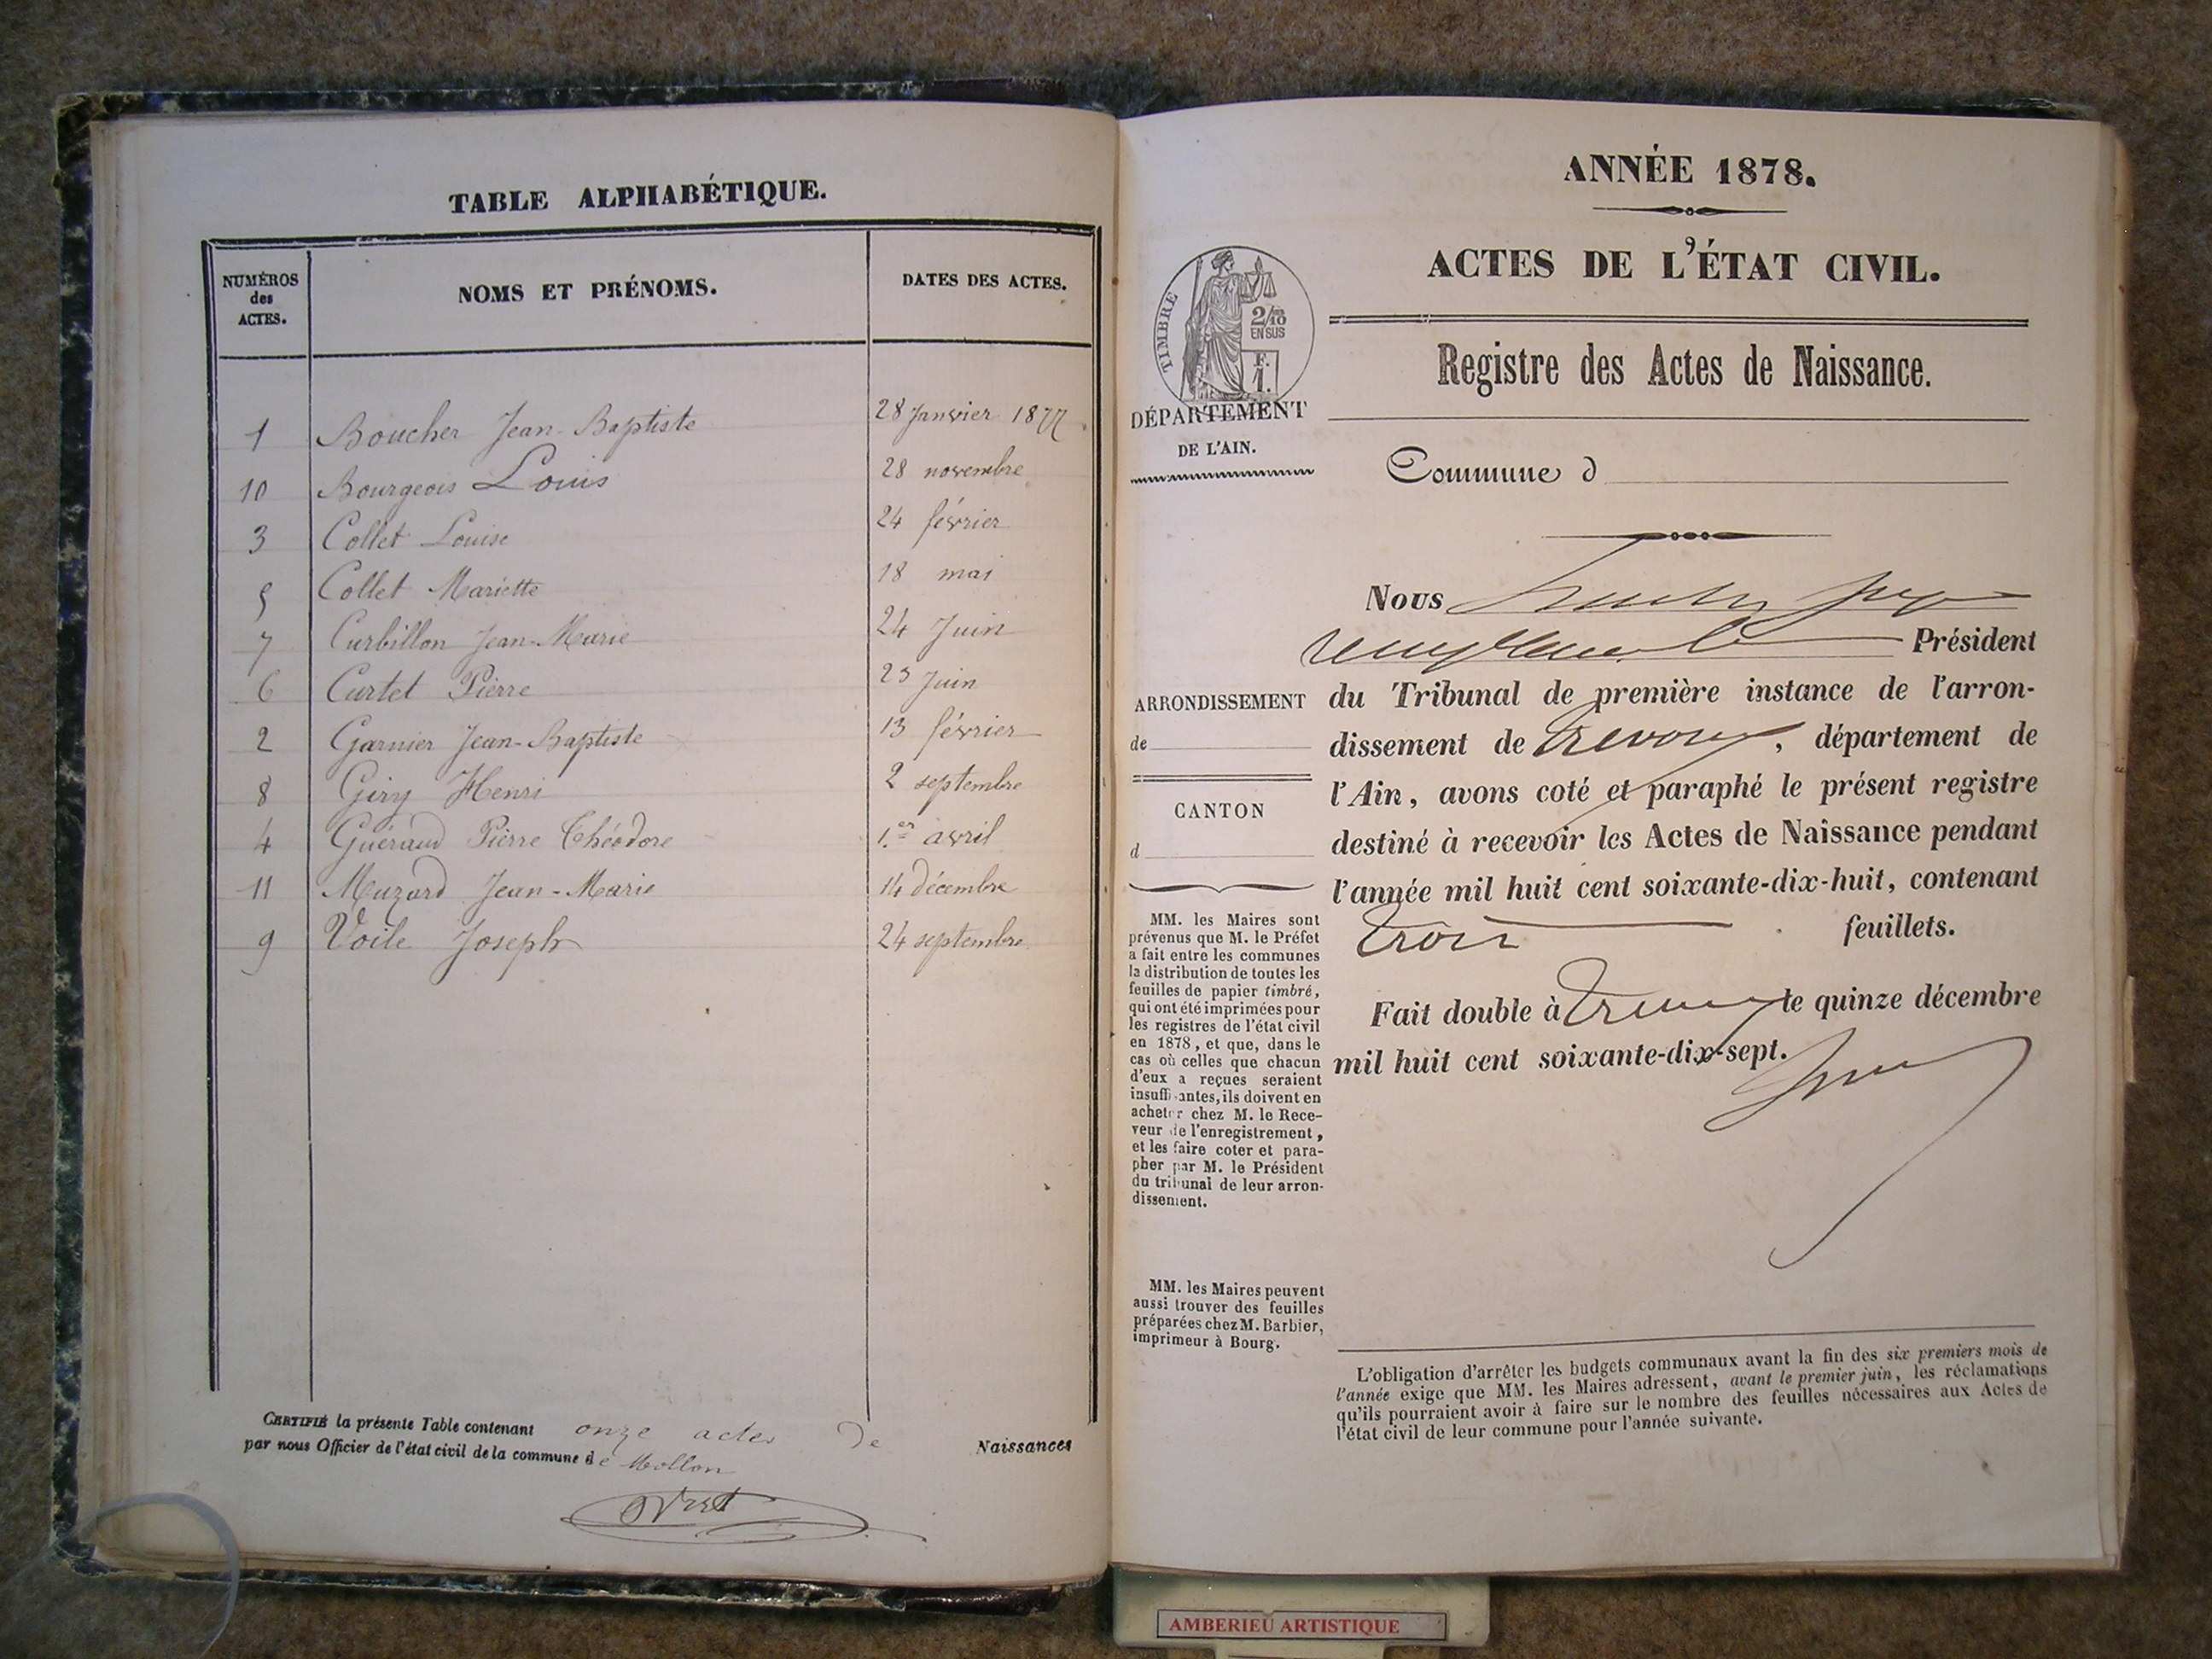 TABLE ALPHABÉTIQUE.
NUMÉROS des ACTES. NOMS ET PRÉNOMS. DATES DES ACTES.
1 Boucher Jean-Baptiste 28 Janvier 1877
10 Bourgeois Louis 28 novembre
3 Collet Louise 24 février
5 Collet Mariette 18 mai
7 Curbillon Jean-Marie 24 Juin
6 Curtet Pierre 23 Juin
2 Garnier Jean-Baptiste 13 février
8 Giry Henri 2 septembre
4 Guéraud Pierre Théodore 1.er avril
11 Muzard Jean-Marie 14 décembre
9 Voile Joseph 24 septembre
CERTIFIÉ la présente Table contenant onze actes de Naissances
par nous Officier de l'état civil de la commune de Mollon
ANNÉE 1878.
ACTES DE L'ÉTAT CIVIL.
TIMBRE
2/10
EN SUS
F.
1.
Registre des Actes de Naissance.
DÉPARTEMENT
DE L'AIN.
Commune d
Nous
Président
ARRONDISSEMENT
de
CANTON
d
du Tribunal de première instance de l'arron-
dissement de Trévoux, département de
l'Ain, avons coté et paraphé le présent registre
destiné à recevoir les Actes de Naissance pendant
l'année mil huit cent soixante-dix-huit, contenant
trois feuillets.
Fait double à Trévoux le quinze décembre
mil huit cent soixante-dix-sept.
MM. les Maires sont
prévenus que M. le Préfet
a fait entre les communes
la distribution de toutes les
feuilles de papier timbré,
qui ont été imprimées pour
les registres de l'état civil
en 1878, et que, dans le
cas où celles que chacun
d'eux a reçues seraient
insuffisantes, ils doivent en
acheter chez M. le Rece-
veur de l'enregistrement,
et les faire coter et para-
pher par M. le Président
du tribunal de leur arron-
dissement.
MM. les Maires peuvent
aussi trouver des feuilles
préparées chez M. Barbier,
imprimeur à Bourg.
L'obligation d'arrêter les budgets communaux avant la fin des six premiers mois de
l'année exige que MM. les Maires adressent, avant le premier juin, les réclamations
qu'ils pourraient avoir à faire sur le nombre des feuilles nécessaires aux Actes de
l'état civil de leur commune pour l'année suivante.
AMBERIEU ARTISTIQUE